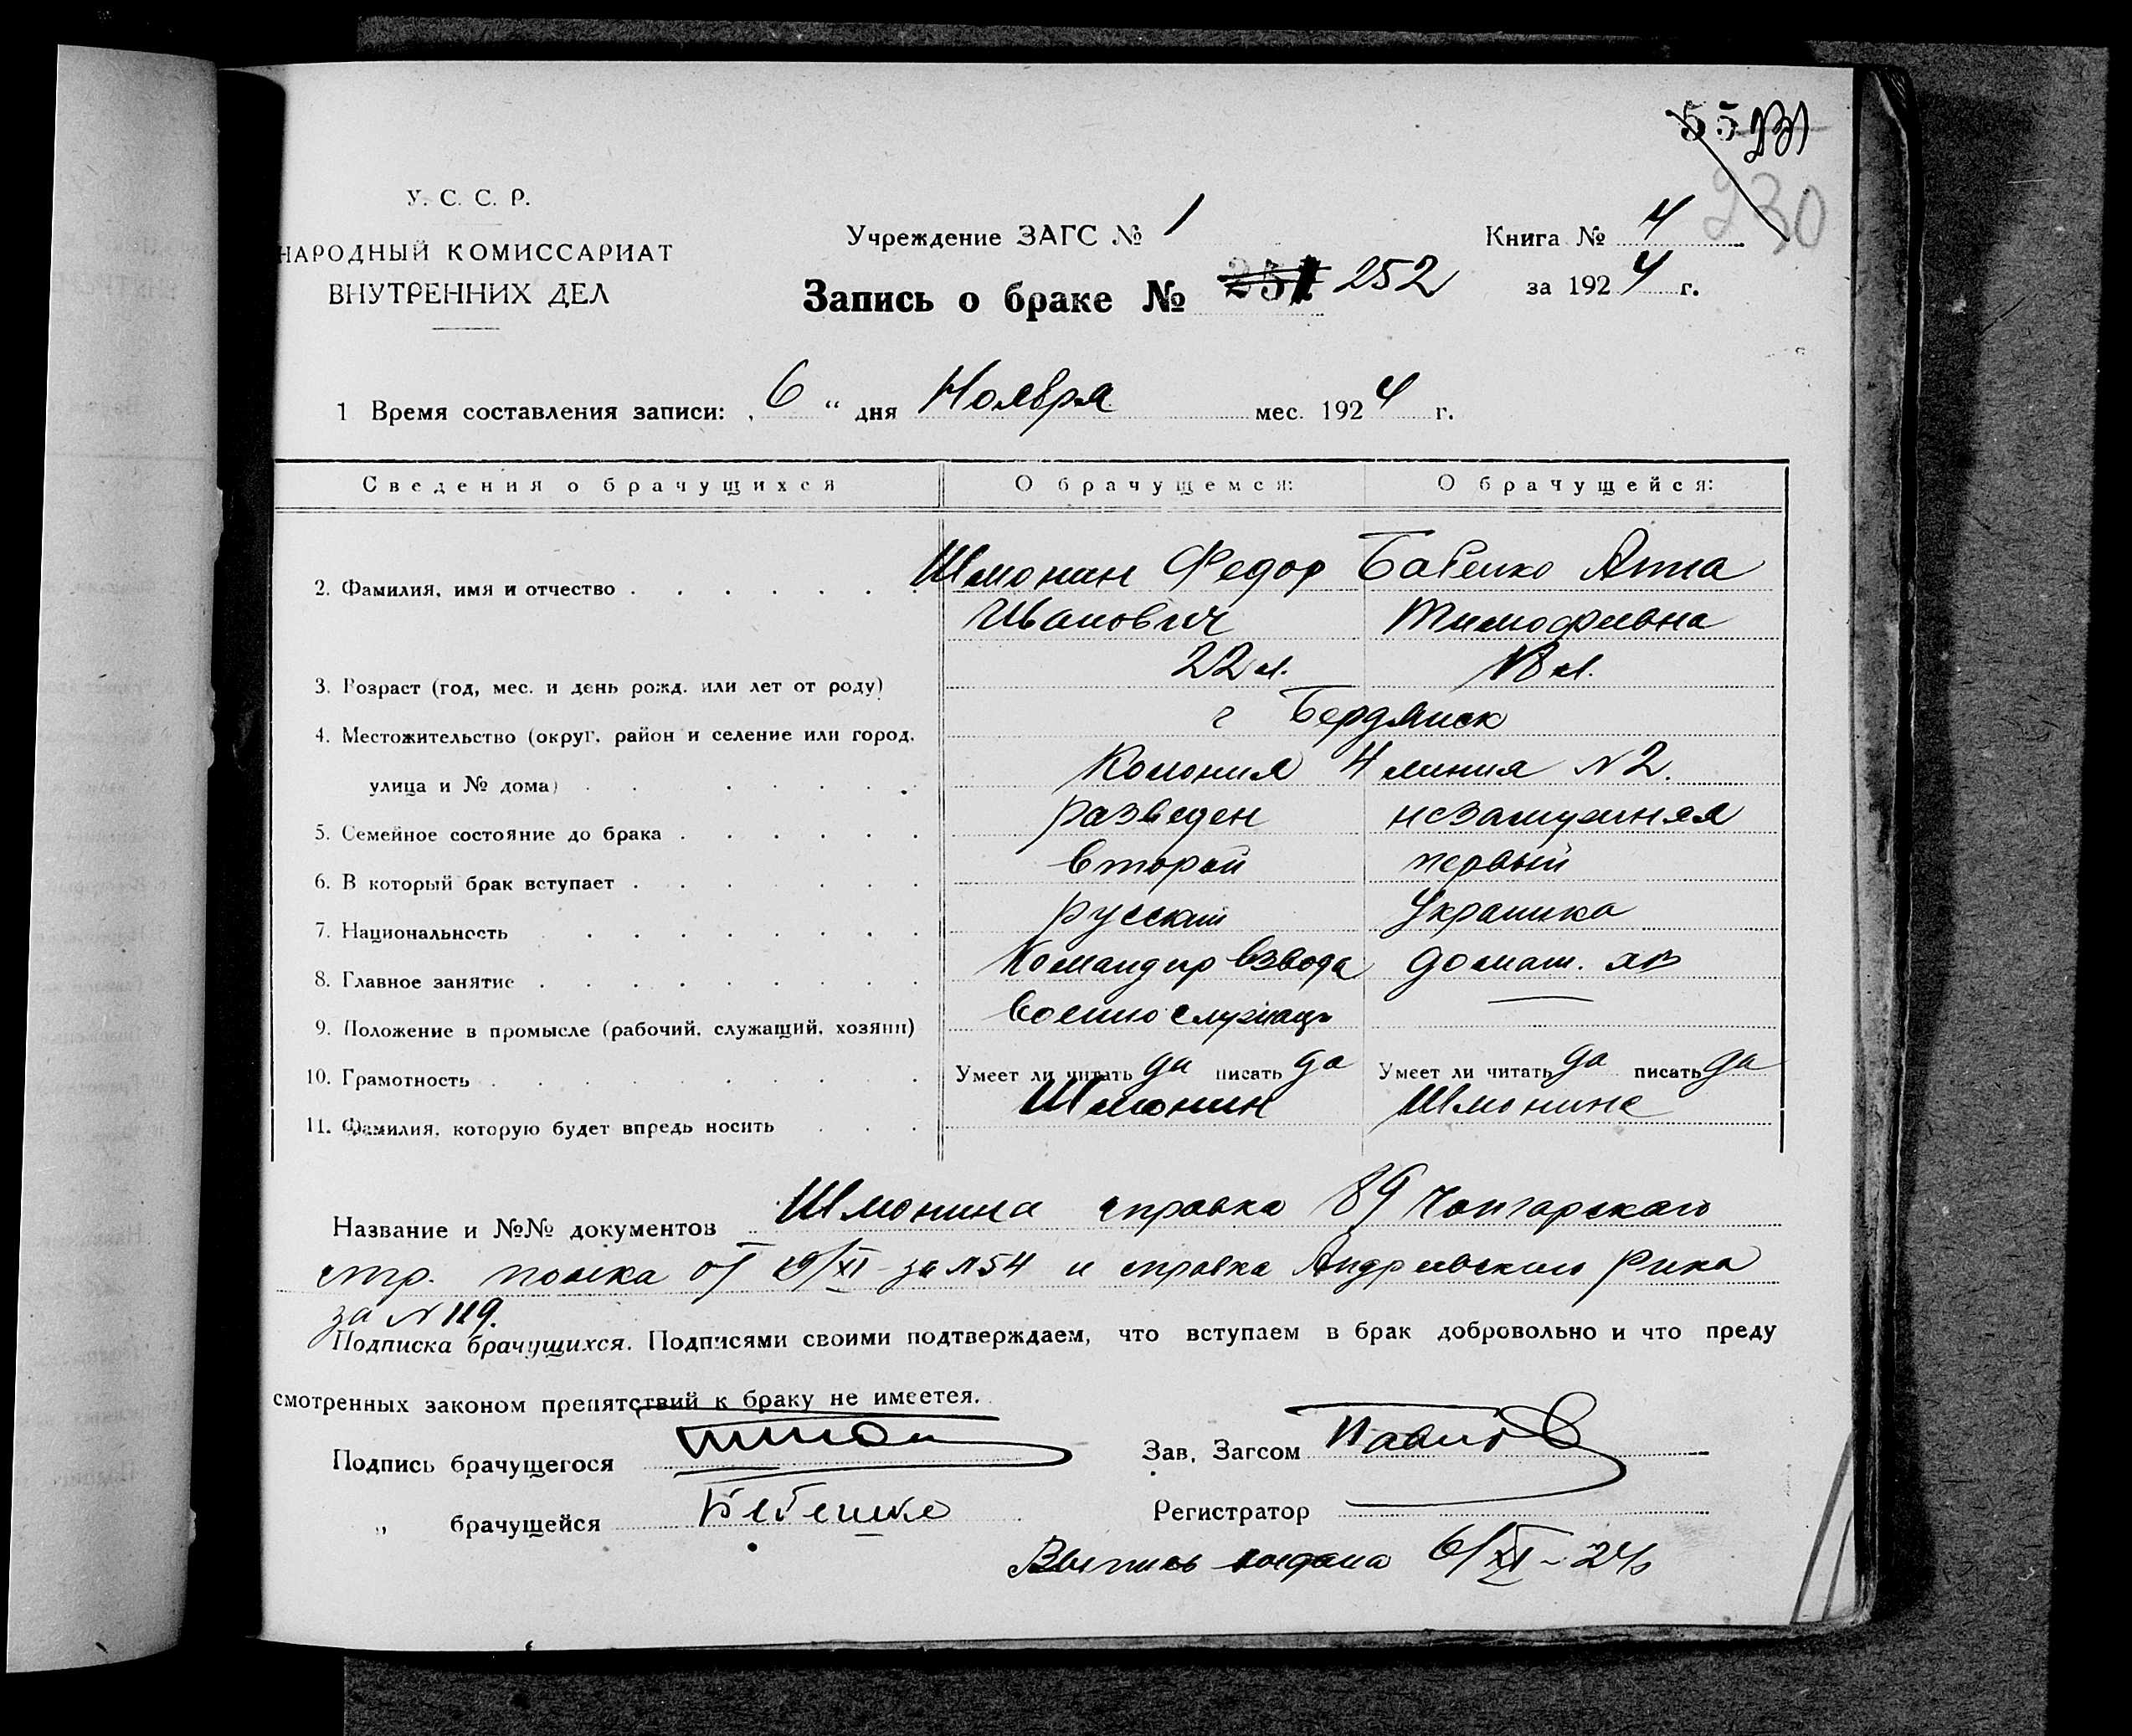 55 231
230
У. С. С. Р.
НАРОДНЫЙ КОМИССАРИАТ
ВНУТРЕННИХ ДЕЛ
Учреждение ЗАГС № 1
Книга № 4
Запись о браке № 251 252
за 1924 г.
1 Время составления записи: „ 6 “ дня Ноября мес. 1924 г.
Сведения о брачущихся О брачущемся: О брачущейся:
2. Фамилия, имя и отчество Шмонин Федор Бабенко Анна
Иванович Тимофеевна
3. Возраст (год, мес. и день рожд. или лет от роду) 22 л. 18 л.
4. Местожительство (округ, район и селение или город, г Бердянск
улица и № дома) Колония 4 линия N 2.
5. Семейное состояние до брака разведен незамужняя
6. В который брак вступает второй первый
7. Национальность русский Украинка
8. Главное занятие Командир взвода домаш. хоз
9. Положение в промысле (рабочий, служащий, хозяин) военнослужащ —
10. Грамотность Умеет ли читать да писать да Умеет ли читать да писать да
11. Фамилия, которую будет впредь носить Шмонин Шмонина
Название и №№ документов Шмонина справка 89 Чонгарского
стр. полка от /XI за N 54 и справка Андреевского Рика
за N 119.
Подписка брачущихся. Подписями своими подтверждаем, что вступаем в брак добровольно и что преду
смотренных законом препятствий к браку не имеется.
Подпись брачущегося Зав. Загсом
„ брачущейся Бабенко Регистратор
Выпись выдана 6/XI - 24